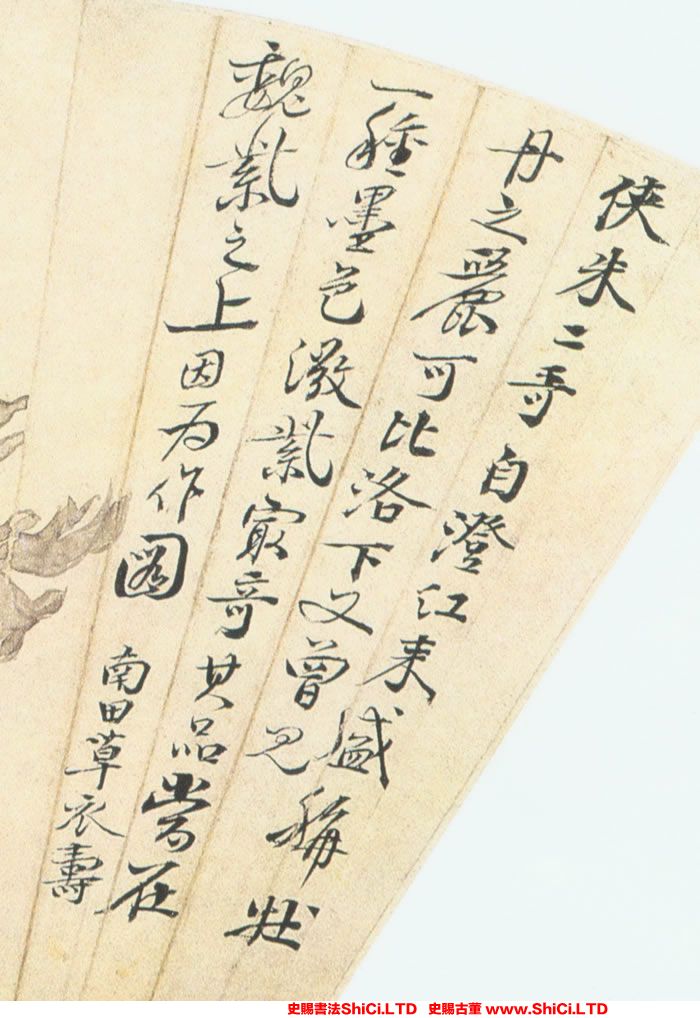 俠朱二哥自澄江来盛稱牡
丹之麗可比洛下又曾見
一種墨色潑紫最奇其品當在
魏紫之上因为作圖
南田草衣壽
史賜書法ShiCi.LTD 史賜古董 www.ShiCi.LTD